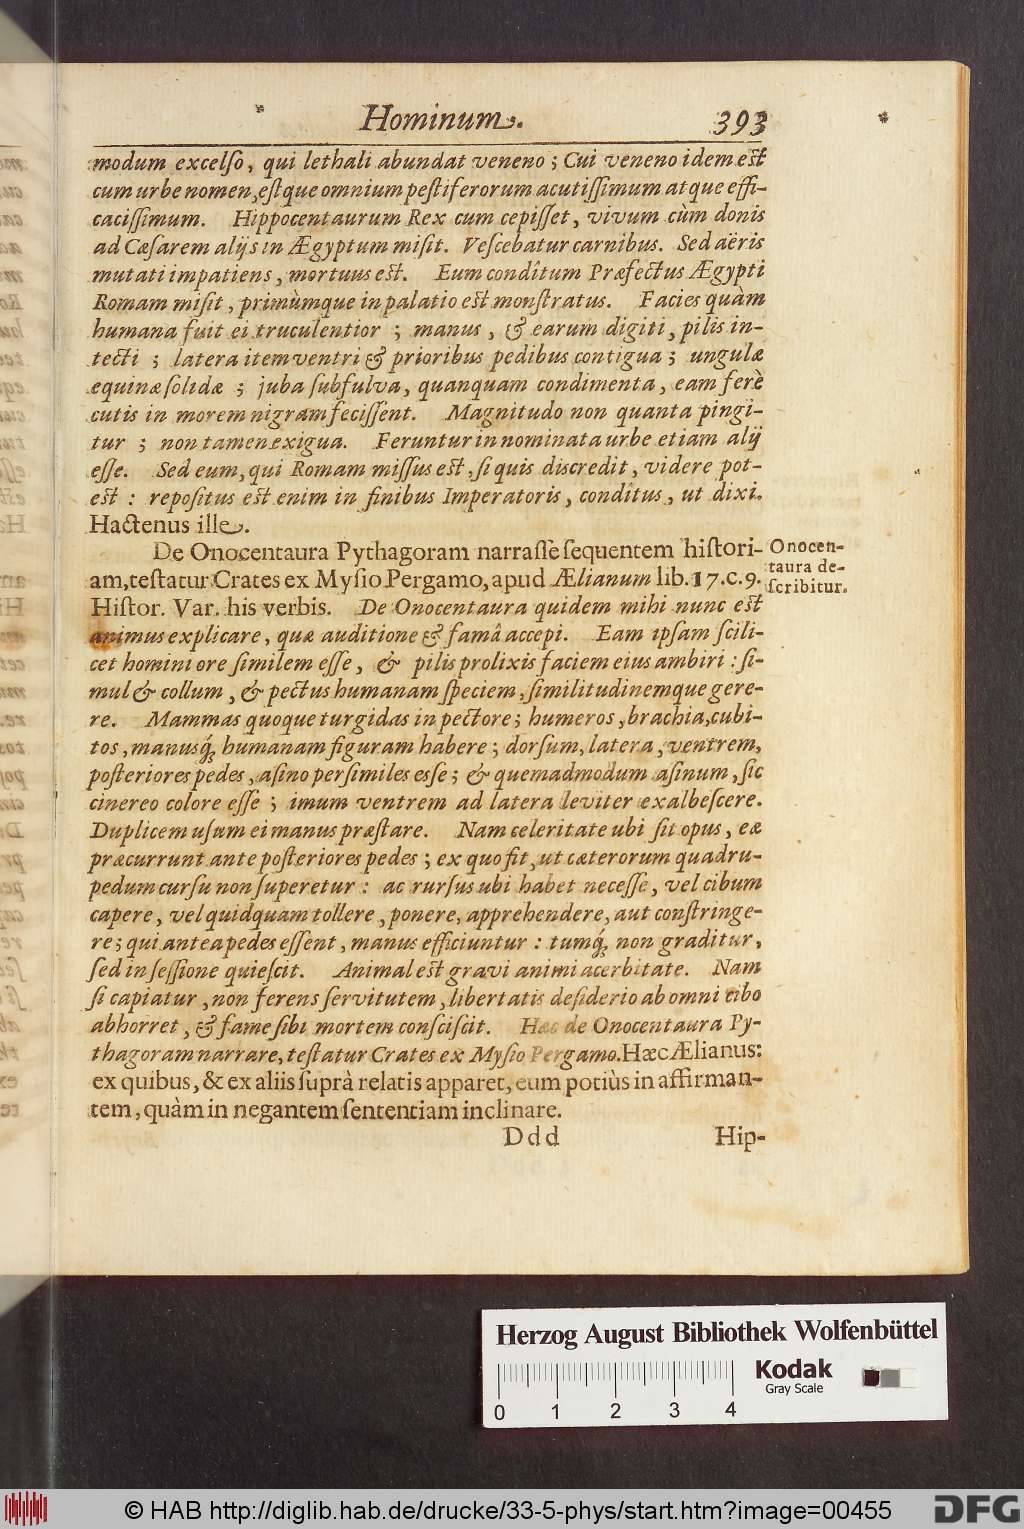 Hominum. 393
modum excelſo, qui lethali abundat veneno; Cui veneno idem est
cum urbe nomen, estque omnium peſtiferorum acutiſſimum atque effi-
caciſſimum. Hippocentaurum Rex cum cepiſſet, vivum cùm donis
ad Cæſarem alijs in Ægyptum miſit. Veſcebatur carnibus. Sed aëris
mutati impatiens, mortuus est. Eum condîtum Præfectus Ægypti
Romam miſit, primùmque in palatio est monſtratus. Facies quàm
humana fuit ei truculentior; manus, & earum digiti, pilis in-
tecti; latera item ventri & prioribus pedibus contigua; ungulæ
equinæ ſolidæ; juba ſubfulva, quanquam condimenta, eam ferè
cutis in morem nigram feciſſent. Magnitudo non quanta pingi-
tur; non tamen exigua. Feruntur in nominata urbe etiam alij
eſſe. Sed eum, qui Romam miſſus est, ſi quis diſcredit, videre pot-
est: repoſitus est enim in finibus Imperatoris, condîtus, ut dixi.
Hactenus ille.
De Onocentaura Pythagoram narraſſe ſequentem hiſtori-
am, teſtatur Crates ex Myſio Pergamo, apud Ælianum lib. 17. c. 9.
Onocen-
taura de-
ſcribitur.
Hiſtor. Var. his verbis. De Onocentaura quidem mihi nunc est
animus explicare, quæ auditione & famâ accepi. Eam ipſam ſcili-
cet homini ore ſimilem eſſe, & pilis prolixis faciem eius ambiri: ſi-
mul & collum, & pectus humanam ſpeciem, ſimilitudinemque gere-
re. Mammas quoque turgidas in pectore; humeros, brachia, cubi-
tos, manusq́; humanam figuram habere; dorſum, latera, ventrem,
poſteriores pedes, aſino perſimiles esse; & quemadmodum aſinum, ſic
cinereo colore eſſe; imum ventrem ad latera leviter exalbeſcere.
Duplicem uſum ei manus præſtare. Nam celeritate ubi ſit opus, eæ
præcurrunt ante poſteriores pedes; ex quo fit, ut cæterorum quadru-
pedum curſu non ſuperetur: ac rurſus ubi habet neceſſe, vel cibum
capere, vel quidquam tollere, ponere, apprehendere, aut conſtringe-
re; qui antea pedes eſſent, manus efficiuntur: tumq́; non graditur,
ſed in ſeſſione quieſcit. Animal est gravi animi acerbitate. Nam
ſi capiatur, non ferens ſervitutem, libertatis deſiderio ab omni cibo
abhorret, & fame ſibi mortem conſciſcit. Hæc de Onocentaura Py-
thagoram narrare, teſtatur Crates ex Myſio Pergamo. Hæc Ælianus:
ex quibus, & ex aliis ſuprà relatis apparet, eum potiùs in affirman-
tem, quàm in negantem ſententiam inclinare.
Ddd Hip-
Herzog August Bibliothek Wolfenbüttel
Kodak
Gray Scale
0 1 2 3 4
© HAB http://diglib.hab.de/drucke/33-5-phys/start.htm?image=00455
DFG